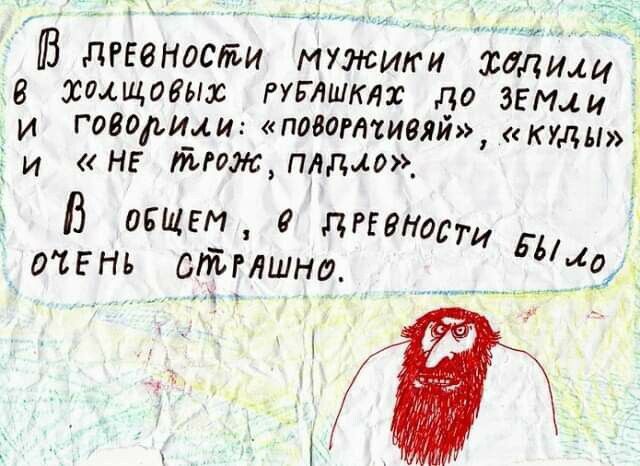 В древности мужики ходили
в холщовых рубашках до земли
и говорили: «поворачивяй», «куды»
и «не трож, падло».
В общем, в древности было
очень страшно.